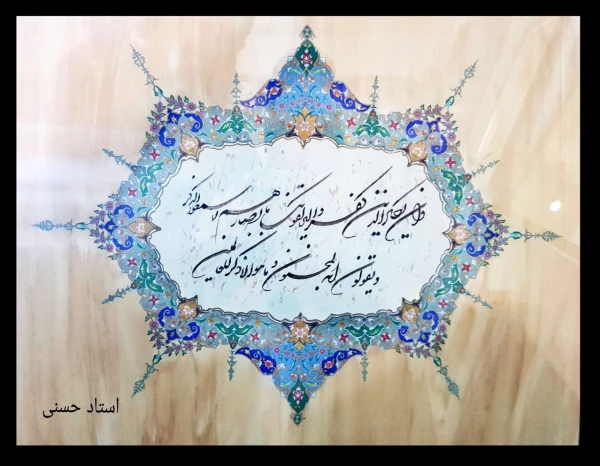 وان یکاد الذین کفروا لیزلقونک بابصارهم لما سمعوا الذکر
و یقولون انه لمجنون و ما هو الا ذکر للعالمین
استاد حسنی